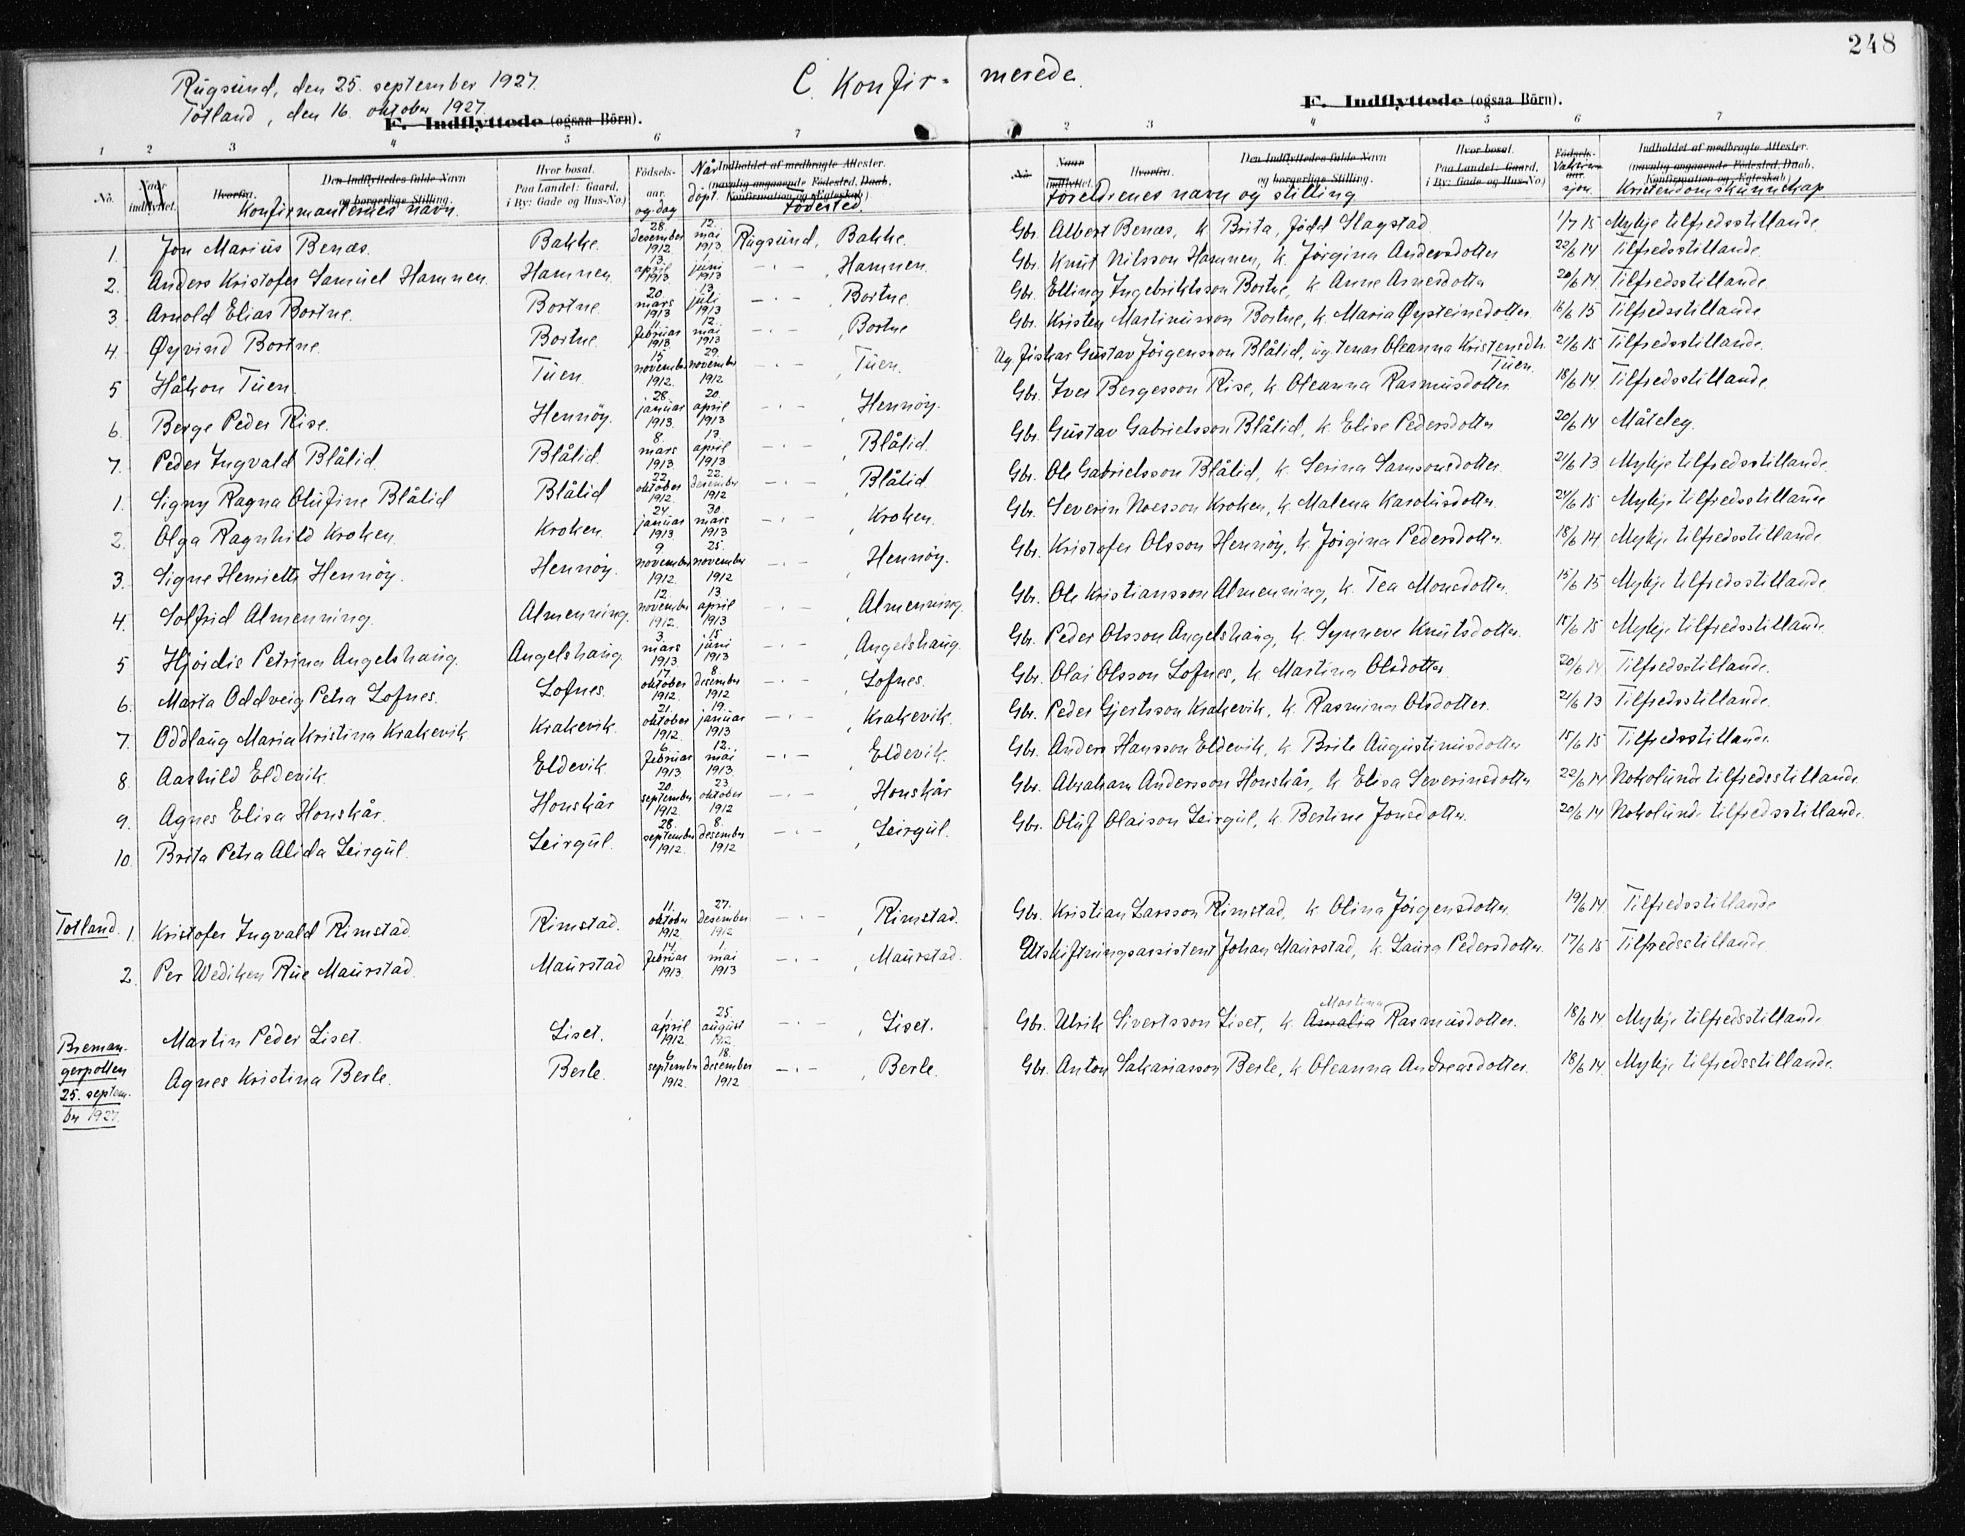 248
Rugsund, den 25. september 1927.
Totland, den 16. oktober 1927.
C. Konfir- merede.
F. Indflyttede (ogsaa Börn).
F. Indflyttede (ogsaa Börn).
1 2 3 4 5 6 7
2 3 4 5 6 7
No. Naar indflyttet. Hvorfra. Den Indflyttedes fulde Navn og borgerlige Stilling. Hvor bosat. Paa Landet: Gaard, i By: Gade og Hus-No. Födsels- aar og dag Når döpt. Indholdet af medbragte Attester. (navnlig angaaende Födested, Daab, Konfirmation og Ægteskab)
Konfirmantenes navn. Födested.
No. Naar indflyttet. Hvorfra. Den Indflyttedes fulde Navn og borgerlige Stilling. Hvor bosat. Paa Landet: Gaard, i By: Gade og Hus-No. Födsels- aar Indholdet af medbragte Attester. (navnlig angaaende Födested, Daab, Konfirmation og Ægteskab)
Foreldrenes navn og stilling Kristendomskunnskap
1. Jon Marius Benæs. Bakke. 28. desember 1912 12. mai 1913 Rugsund, Bakke. Gbr. Albert Benæs, k. Brita, född Hagstad. 1/7 15 Mykje tilfredsstillande.
2. Anders Kristofer Samuel Hamnen. Hamnen. 13. april 1913 1. juni 1913 - " - , Hamnen. Gbr. Knut Nilsson Hamnen, k. Jørgina Andersdotter 22/6 14 Tilfredsstillande.
3. Arnold Elias Bortne. Bortne. 20. mars 1913 13. juli 1913 - " - , Bortne. Gbr. Elling Ingebriktsson Bortne, k. Anne Arnesdotter 20/6 14 Tilfredsstillande.
4. Øyvind Bortne. Bortne. 11. februar 1913 12. mai 1913 - " - , Bortne Gbr. Kristen Martinusson Bortne, k. Maria Øysteinsdotter. 16/6 15 Tilfredsstillande
5 Håkon Tuen. Tuen. 15 november 1912. 29. november 1912 - " - , Tuen. Ug. fiskar Gustav Jörgensson Blålid, ug. tenar Oleanna Kristensdtr. Tuen. 21/6 15 Tilfredsstillande.
6. Berge Peder Rise. Hennöy. 28. januar 1913. 20. april 1913 - " - , Hennöy. Gbr. Iver Bergesson Rise, k. Oleanna Rasmusdotter 18/6 14 Tilfredsstillande.
7. Peder Ingvald Blålid. Blålid. 8. mars 1913 13. april 1913 - " - , Blålid. Gbr. Gustav Gabrielsson Blålid, k. Elise Pedersdotter 20/6 14 Måteleg.
1. Signy Ragna Olufine Blålid Blålid 22. oktober 1912. 22. desember 1912 - " - , Blålid. Gbr. Ole Gabrielsson Blålid, k. Serina Samsonsdotter. 21/6 13 Mykje tilfredsstillande.
2. Olga Ragnhild Kroken. Kroken. 24. januar 1913 30. mars 1913 - " - , Kroken. Gbr. Severin Moesson Kroken, k. Malena Karolusdotter. 24/6 15 Mykje tilfredsstillande
3. Signe Henriette Hennöy. Hennöy. 9 november 1912. 25. november 1912 - " - , Hennöy. Gbr. Kristofer Olsson Hennöy, k. Jørgina Pedersdotter. 18/6 14 Mykje tilfredsstillande
4. Solfrid Almenning. Almenning. 12. november 1912. 13 april 1913 - " - , Almenning. Gbr. Ole Kristiansson Almenning, k. Tea Monsdotter. 15/6 15 Mykje tilfredsstillande.
5 Hjördis Petrina Angelshaug. Angelshaug. 3. mars 1913. 15. juni 1913 - " - , Angelshaug. Gbr. Peder Olsson Angelshaug, k. Synneve Knutsdotter. 15/6 15 Mykje tilfredsstillande.
6. Marta Oddveig Petra Lofnes. Lofnes. 17. oktober 1912. 8. desember 1912 - " - , Lofnes. Gbr. Olai Olsson Lofnes, k. Martina Olsdotter. 20/6 14 Tilfredsstillande.
7. Oddlaug Maria Kristina Krakevik Krakevik. 21. oktober 1912. 19. januar 1913 - " - , Krakevik. Gbr. Peder Gjertsson Krakevik, k. Rasmina Olsdotter. 21/6 13 Tilfredsstillande.
8. Aashild Eldevik. Eldevik. 6. februar 1913 12. mai 1913. - " - , Eldevik. Gbr. Anders Hansson Eldevik, k. Brite Augustinusdotter 15/6 15 Tilfredsstillande.
9. Agnes Elisa Honskår. Honskår 20. september 1912. 23. oktober 1912 - " - , Honskår Gbr. Abraham Andersson Honskår, k. Elisa Severinsdotter 22/6 14 Nokolunde tilfredsstillande
10. Brita Petra Alida Leirgul. Leirgul. 28. september 1912. 8. desember 1912 - " - , Leirgul. Gbr. Oluf Olaison Leirgul, k. Bertine Jonsdotter. 20/6 14 Nokolunde tilfredsstillande.
Totland. 1. Kristofer Ingvald Rimstad. Rimstad. 11. oktober 1912. 27. desember 1912 - " - , Rimstad. Gbr. Kristian Larsson Rimstad, k. Olina Jörgensdotter. 19/6 14 Tilfredsstillande
2. Per Wediken Rue Maurstad. Maurstad 14. februar 1913. 1. mai 1913 - " - , Maurstad. Utskiftningsassistent Johan Maurstad, k. Laura Pedersdotter. 17/6 15 Tilfredsstillande
Breman- gerpollen 25. septem- ber 1927.
Martin Peder Liset. Liset. 1. april 1912. 25. august 1912. - " - , Liset. Gbr. Ulrik Sivertsson Liset, k. Amalia Martina Rasmusdotter. 18/6 14. Mykje tilfredsstillande
Agnes Kristina Berle. Berle. 6. september 1912. 18. desember 1912 - " - , Berle. Gbr. Anton Sakariasson Berle, k. Oleanna Andreasdotter. 18/6 14. Mykje tilfredsstillande.